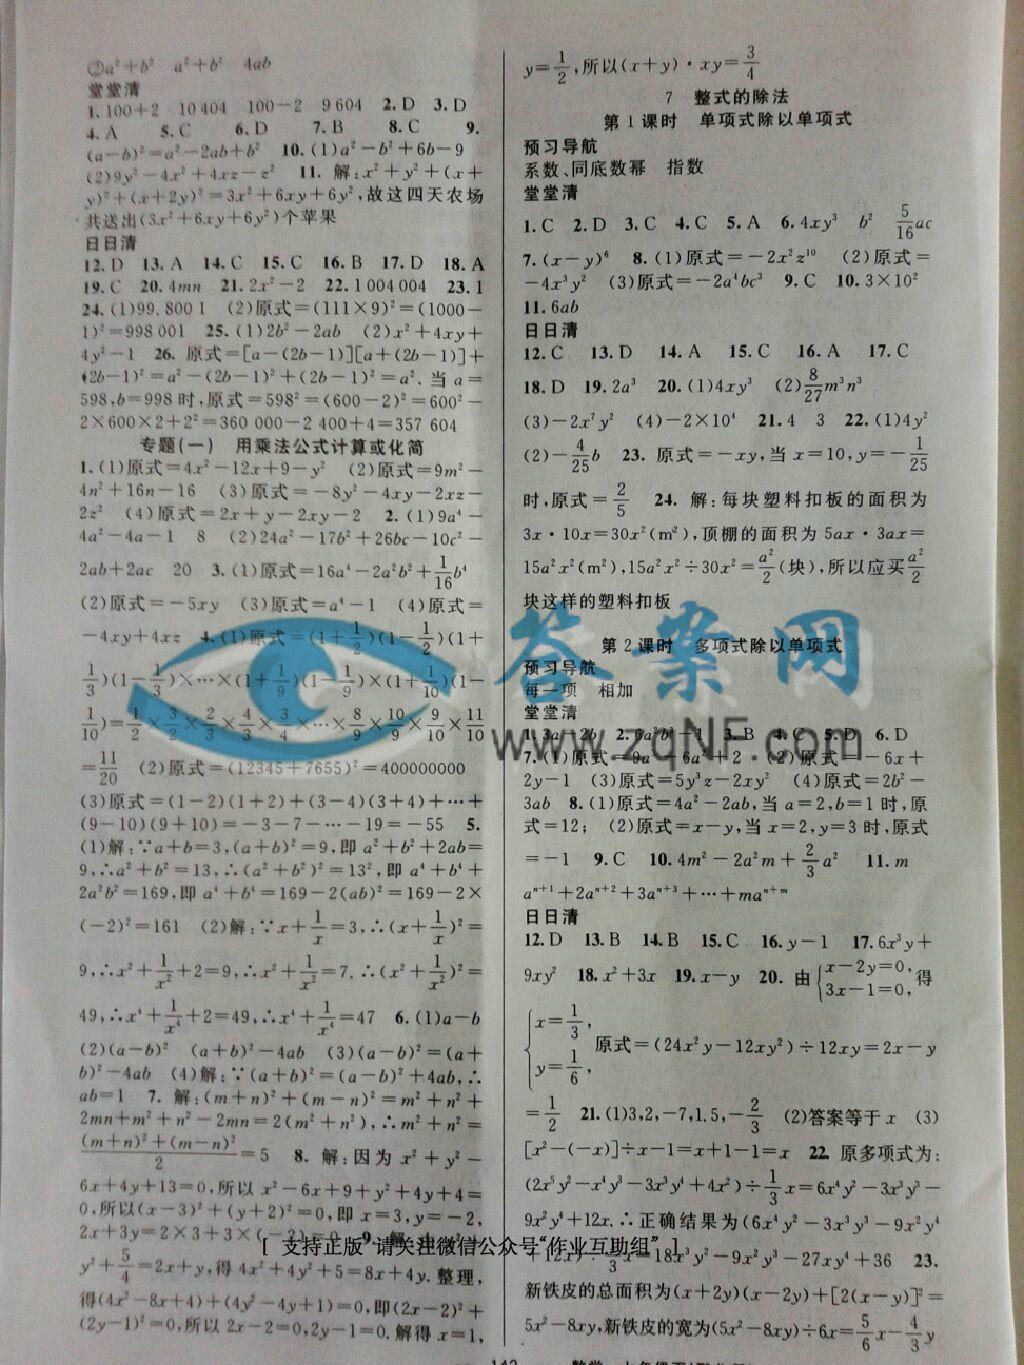 ②a²+b²　a²+b²　4ab
堂堂清
1.100+2　10 404　100-2　9 604　2.D　3.D
4.A　5.C　6.D　7.B　8.C　9.
(a-b)²=a²-2ab+b²　10.(1)a²-b²+6b-9
(2)9y²-4x²+4xz-z²　11.解:x²+y²+(x+
y)²+(x+2y)²=3x²+6xy+6y²,故这四天农场
共送出(3x²+6xy+6y²)个苹果
日日清
12.D　13.A　14.C　15.C　16.B　17.D　18.A
19.C　20.4mn　21.2x²-2　22.1 004 004　23.1
24.(1)99.800 1　(2)原式=(111×9)²=(1000-
1)²=998 001　25.(1)2b²-2ab　(2)x²+4xy+
4y²-1　26.原式=[a-(2b-1)][a+(2b-1)]+
(2b-1)²=a²-(2b-1)²+(2b-1)²=a².当a=
598,b=998时,原式=598²=(600-2)²=600²-
2×600×2+2²=360 000-2 400+4=357 604
专题(一)　用乘法公式计算或化简
1.(1)原式=4x²-12x+9-y²　(2)原式=9m²-
4n²+16n-16　(3)原式=-8y²-4xy-2xz-
2z²　(4)原式=2x+y-2xy-2　2.(1)9a⁴-
4a²-4a-1　8　(2)24a²-17b²+26bc-10c²-
2ab+2ac　20　3.(1)原式=16a⁴-2a²b²+1/16b⁴
(2)原式=-5xy　(3)原式=a⁴-1　(4)原式=
-4xy+4xz　4.(1)原式=(1+1/2)(1-1/2)(1+
1/3)(1-1/3)×…×(1+1/9)(1-1/9)×(1+1/10)(1-
1/10)=1/2×3/2×2/3×4/3×3/4×…×8/9×10/9×9/10×11/10
=11/20　(2)原式=(12345+7655)²=400000000
(3)原式=(1-2)(1+2)+(3-4)(3+4)+…+
(9-10)(9+10)=-3-7-…-19=-55　5.
(1)解:∵a+b=3,(a+b)²=9,即a²+b²+2ab=
9,∴a²+b²=13,∴(a²+b²)²=13²,即a⁴+b⁴+
2a²b²=169,即a⁴+b⁴=169-2(ab)²=169-2×
(-2)²=161　(2)解:∵x+1/x=3,∴(x+1/x)²=
9,∴x²+1/x²+2=9,∴x²+1/x²=7.∴(x²+1/x²)²=
49,∴x⁴+1/x⁴+2=49,∴x⁴+1/x⁴=47　6.(1)a-b
(2)(a-b)²　(a+b)²-4ab　(3)(a-b)²=(a+
b)²-4ab　(4)解:∵(a+b)²=(a-b)²+4ab,∴
ab=1　7.解:(m+n)²+(m-n)²=m²+n²+
2mn+m²+n²-2mn=2(m²+n²),∴m²+n²=
((m+n)²+(m-n)²)/2=5　8.解:因为x²+y²-
6x+4y+13=0,所以x²-6x+9+y²+4y+4=
0,所以(x-3)²+(y+2)²=0,即x=3,y=-2,
2x+3y=2×3+3×(-2)=0　9.解
y²+5/4=2x+y,得4x²+4y²+5=8x+4y.整理,
得(4x²-8x+4)+(4y²-4y+1)=0,即(2x-2)²+
(2y-1)²=0,所以2x-2=0,2y-1=0.解得x=1,
y=1/2,所以(x+y)·xy=3/4
7　整式的除法
第1课时　单项式除以单项式
预习导航
系数、同底数幂　指数
堂堂清
1.C　2.D　3.C　4.C　5.A　6.4xy³　b²　5/16ac
7.(x-y)⁶　8.(1)原式=-2x²z¹⁰　(2)原式=
-4x³y²　(3)原式=-2a⁴bc³　9.C　10.3×10²
11.6ab
日日清
12.C　13.D　14.A　15.C　16.A　17.C
18.D　19.2a³　20.(1)4xy³　(2)8/27m³n³
(3)-2x⁷y²　(4)-2×10⁴　21.4　3　22.(1)4y²
(2)-4/25b　23.原式=-xy,当x=10,y=-1/25
时,原式=2/5　24.解:每块塑料扣板的面积为
3x·10x=30x²(m²),顶棚的面积为5ax·3ax=
15a²x²(m²),15a²x²÷30x²=a²/2(块),所以应买a²/2
块这样的塑料扣板
第2课时　多项式除以单项式
预习导航
每一项　相加
堂堂清
1.3a-2b　2.6a²b²-1　3.B　4.C　5.D　6.D
7.(1)原式=9a⁴-6a²+2　(2)原式=-6x+
2y-1　(3)原式=5y³z-2xy²　(4)原式=2b²-
3ab　8.(1)原式=4a²-2ab,当a=2,b=1时,原
式=12;　(2)原式=x-y,当x=2,y=3时,原式
=-1　9.C　10.4m²-2a²m+2/3a²　11.m
aⁿ⁺¹+2aⁿ⁺²+3aⁿ⁺³+…+maⁿ⁺ᵐ
日日清
12.D　13.B　14.B　15.C　16.y-1　17.6x³y+
9xy²　18.x²+3x　19.x-y　20.由{x-2y=0, 3x-1=0,得
{x=1/3, y=1/6,原式=(24x²y-12xy²)÷12xy=2x-y
=1/2　21.(1)3,2,-7,1.5,-2/3　(2)答案等于x　(3)
[x²-(-x)]÷x-1=x+1-1=x　22.原多项式为:
(2x⁵y²-x⁴y³-3x³y⁴+4x²)÷1/3x=6x⁴y²-3x³y³-
9x²y⁴+12x.∴正确结果为(6x⁴y²-3x³y³-9x²y⁴
+12x)÷1/3x=18x³y²-9x²y³-27xy⁴+36　23.
新铁皮的总面积为(x+2y)(x-2y)+[2(x-y)]²=
5x²-8xy,新铁皮的宽为(5x²-8xy)÷6x=5/6x-4/3y
答案网
www.zqNF.com
[ 支持正版 请关注微信公众号“作业互助组” ]